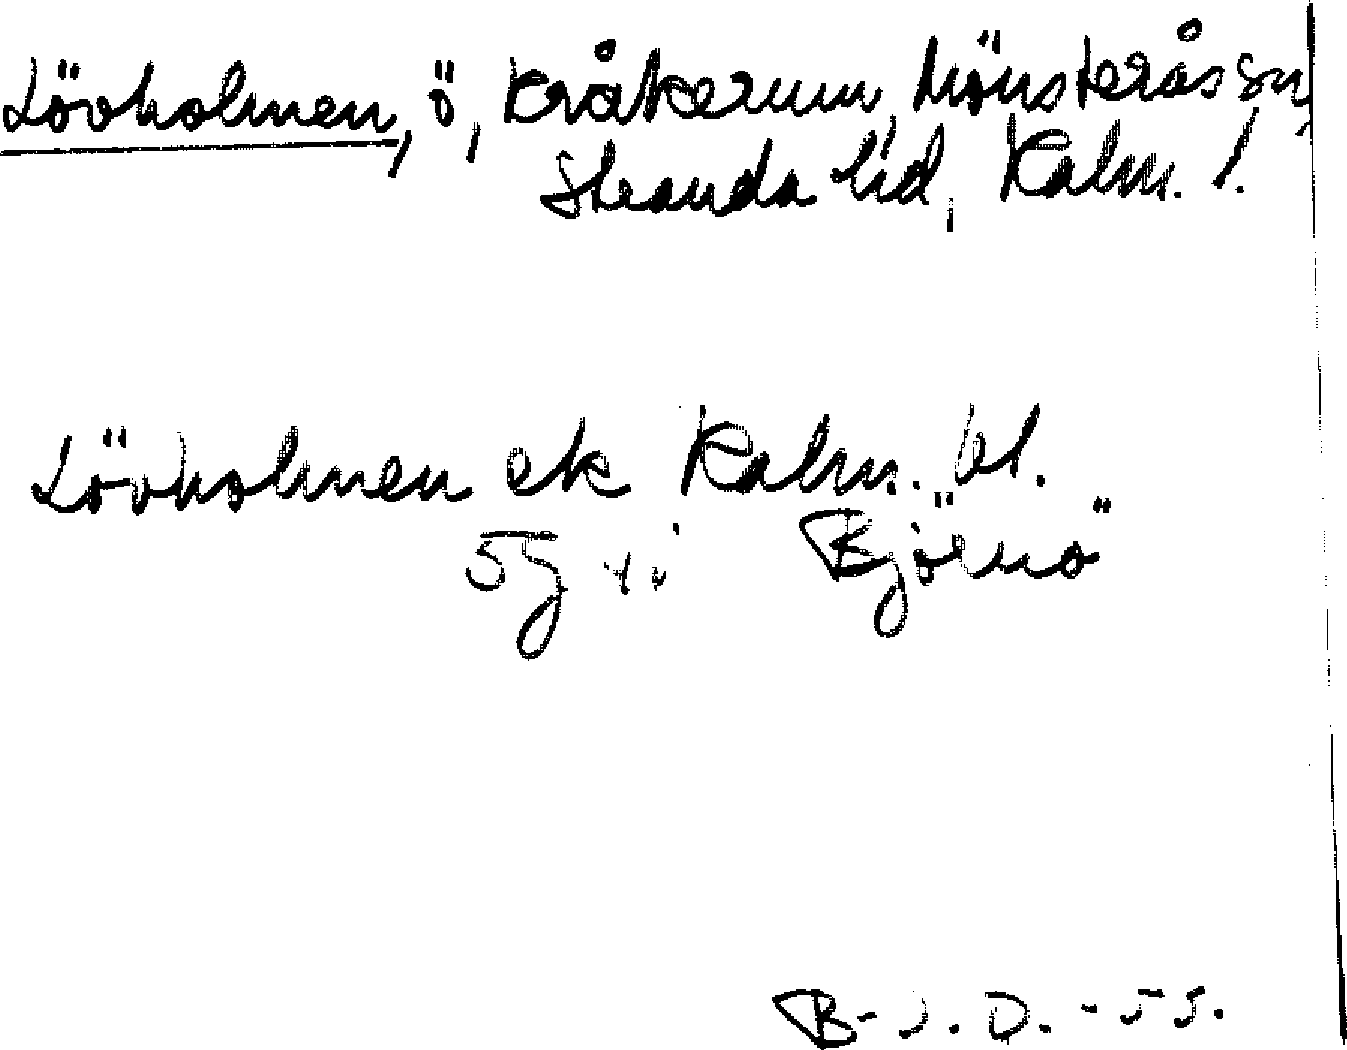 Lövholmen, ö, Kråkerum, Mönsterås sn,
Stranda hd, Kalm. l.
Lövholmen ek Kalm. bl.
5g Björnö
B-J. D. -55.